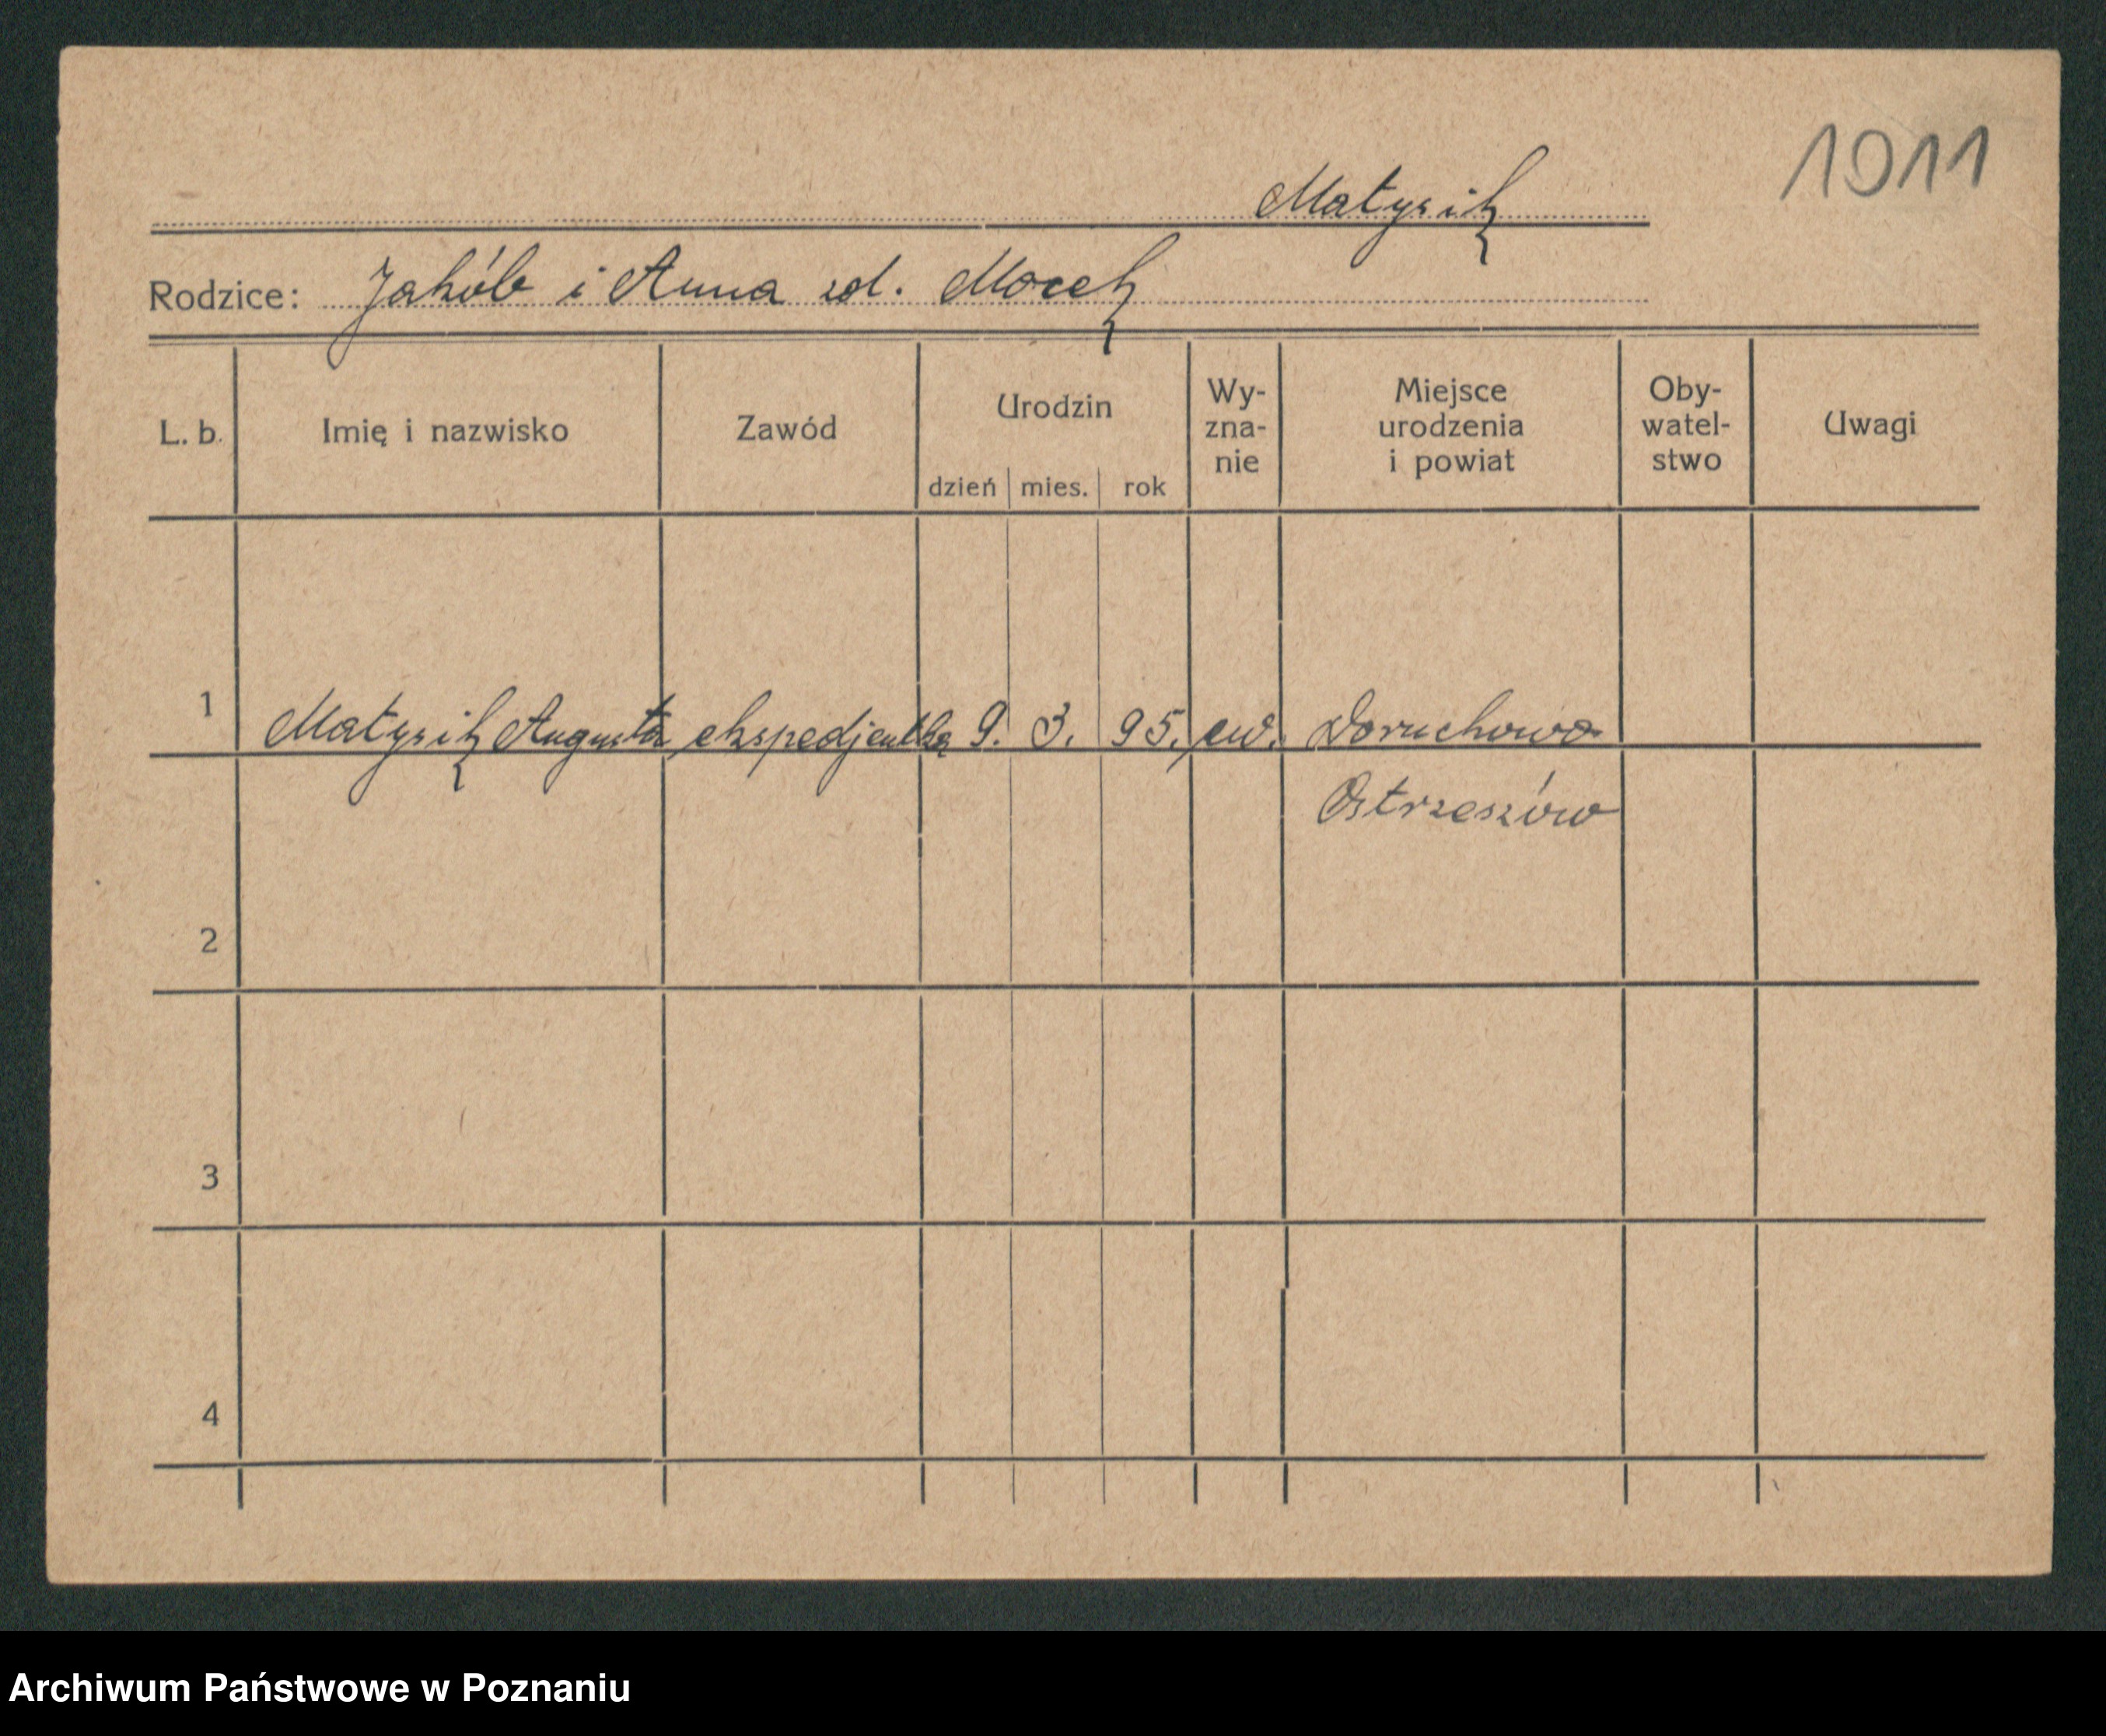 1911
Matysik
Rodzice: Jakób i Anna zd. Mocek
L. b. Imię i nazwisko Zawód Urodzin dzień mies. rok Wy-zna-nie Miejsce urodzenia i powiat Oby-watel-stwo Uwagi
1 Matysik Augusta ekspedjentka 9. 3. 95. ew. Doruchowo
Ostrzeszów
2
3
4
Archiwum Państwowe w Poznaniu